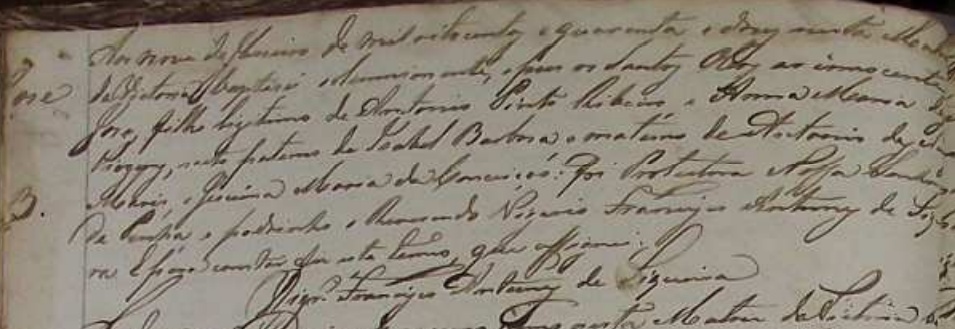 José
Aos nove de Janeiro de mil oitocentos e quarenta e dous nesta Matriz
da Victoria Baptisei solemnemente, e pus os Santos Oleos ao innocente
José, filho legitimo de Antonio Pinto Ribeiro e Anna Maria
neto paterno de Isabel Barbosa e materno de Antonio
Maria da Conceição: Foi Protectora Nossa Senhora
da Penha e padrinho o Reverendo Vigario Francisco Antunes de Siqueira
E p.a constar fiz este termo, que assignei.
Vigr.o Francisco Antunes de Siqueira
nesta Matriz da Victoria